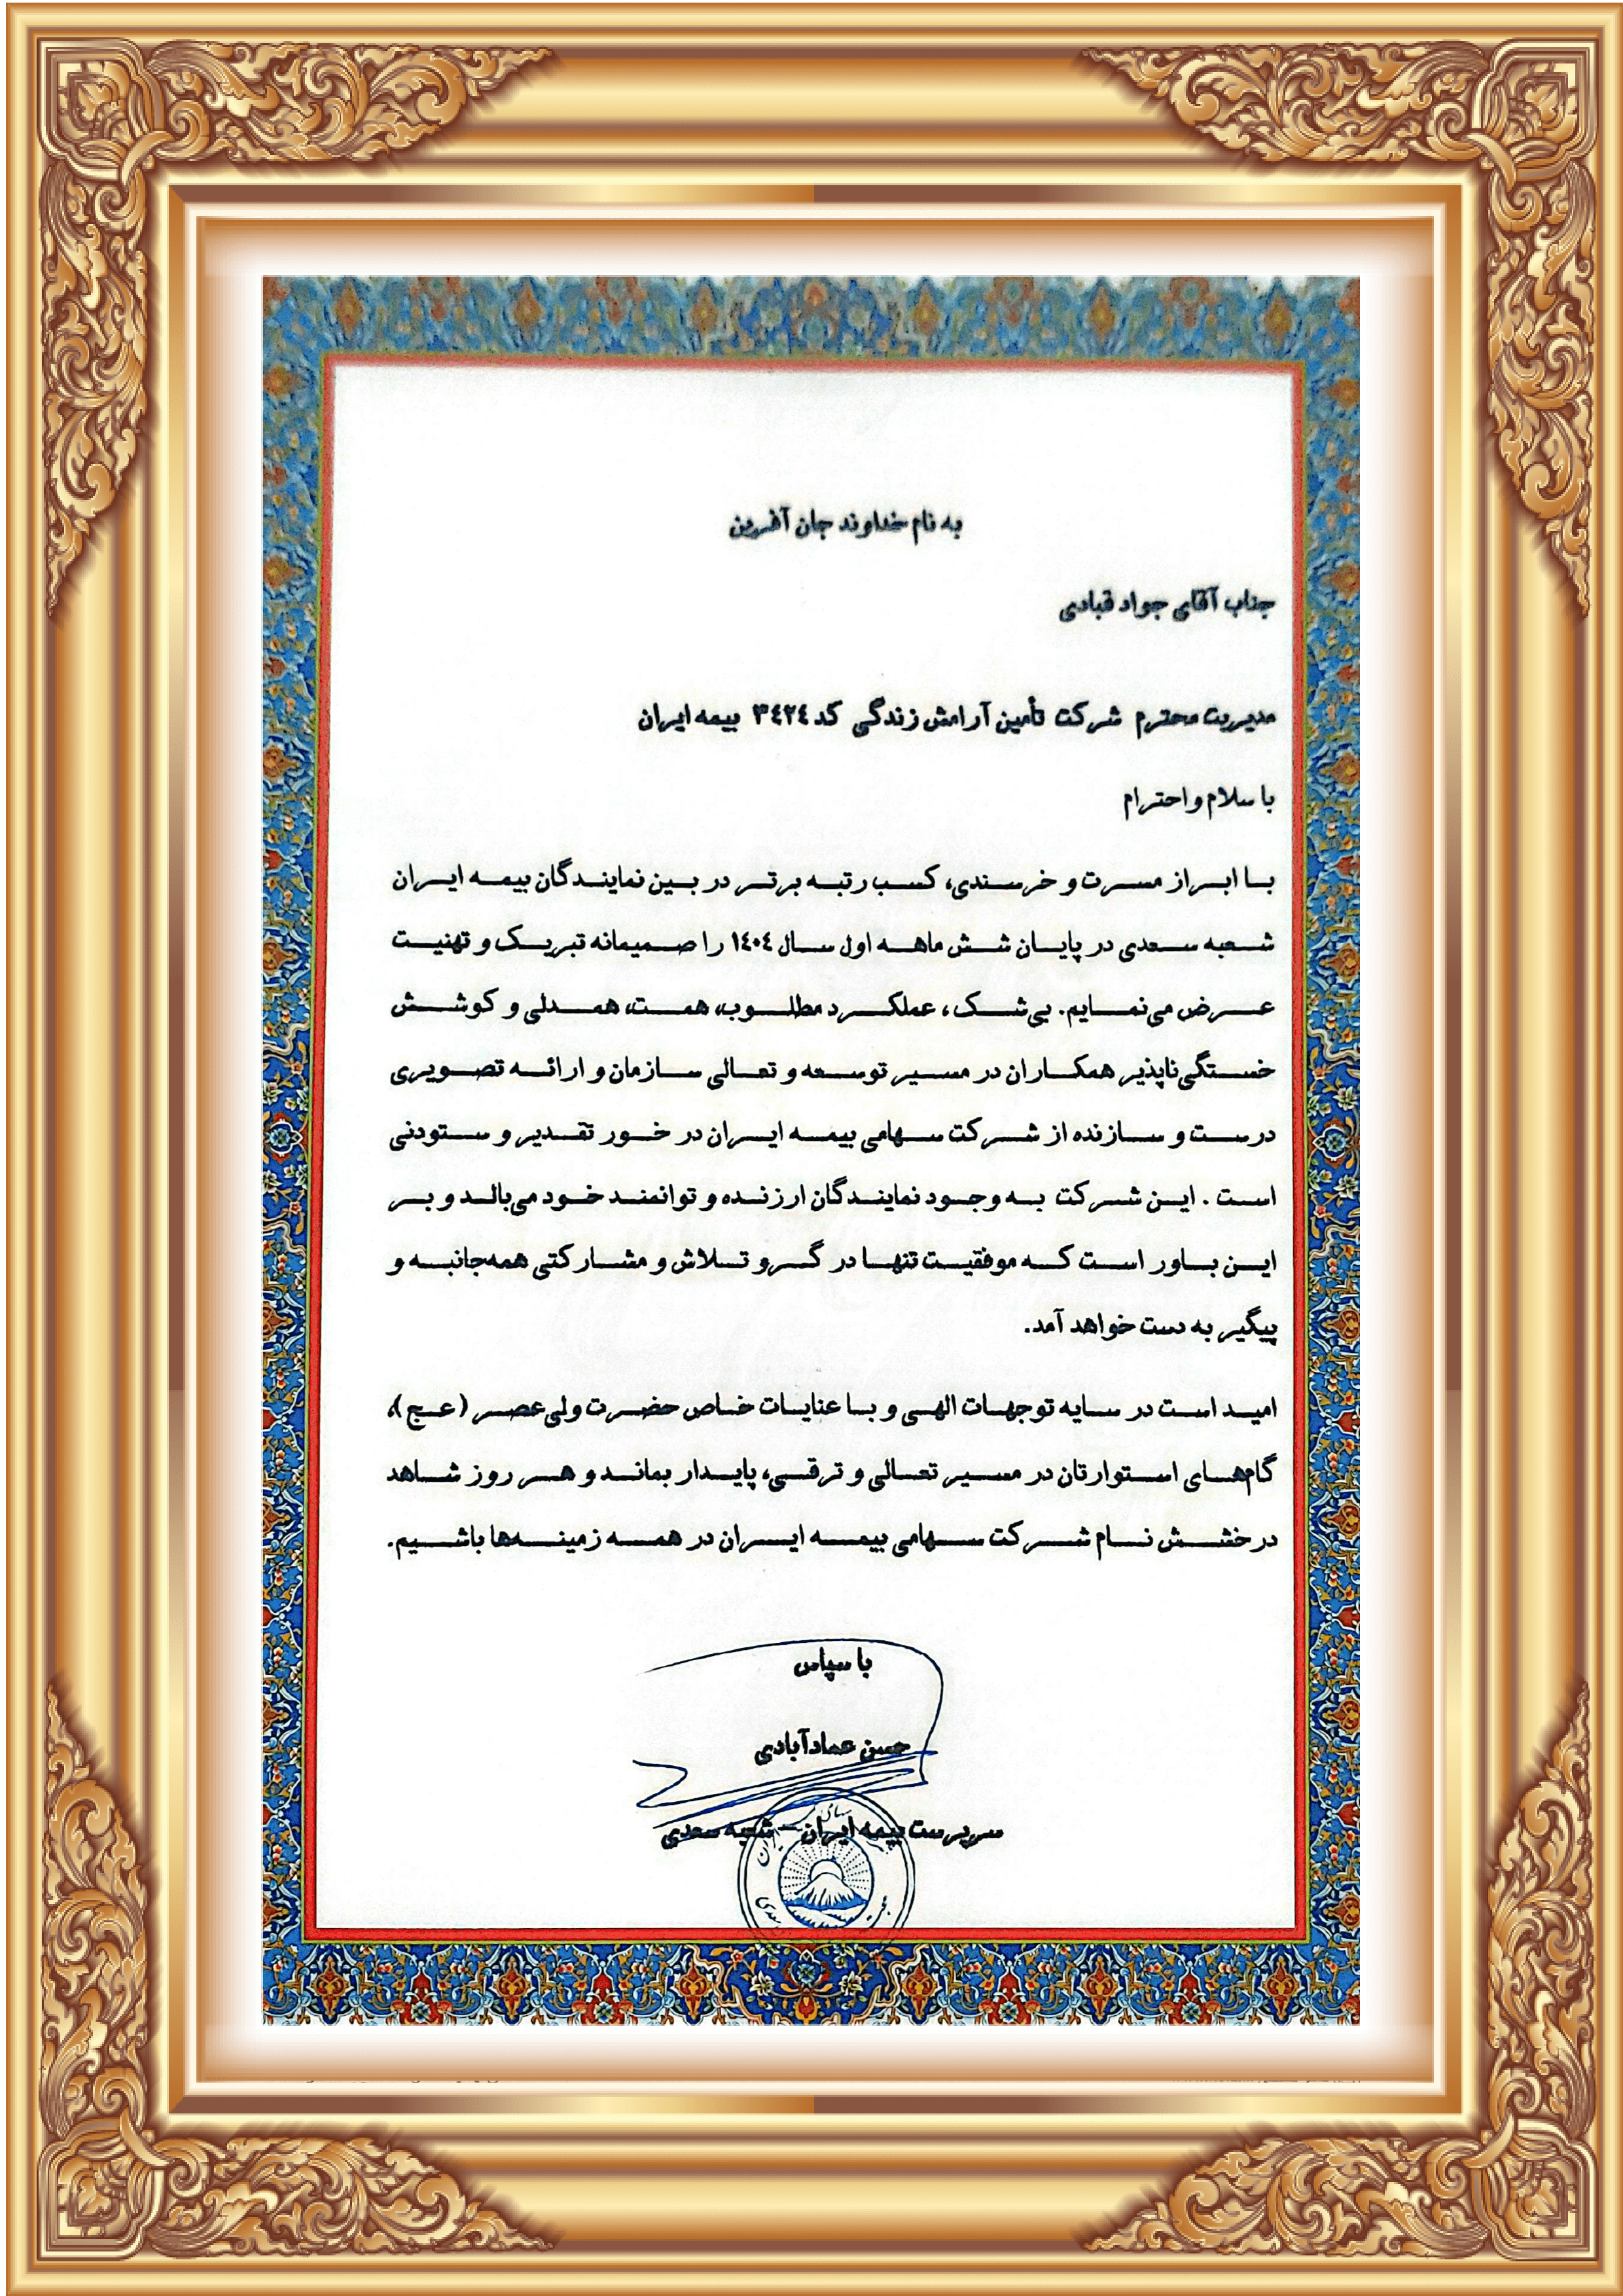 به نام خداوند جان آفرین
جناب آقای جواد قبادی
مدیریت محترم شرکت تأمین آرامش زندگی کد ۳۴۲۴ بیمه ایران
با سلام و احترام
با ابراز مسرت و خرسندی، کسب رتبه برتر در بین نمایندگان بیمه ایران
شعبه سعدی در پایان شش ماهه اول سال ۱۴۰۴ را صمیمانه تبریک و تهنیت
عرض می‌نمایم. بی‌شک، عملکرد مطلوب، همت، همدلی و کوشش
خستگی‌ناپذیر همکاران در مسیر توسعه و تعالی سازمان و ارائه تصویری
درست و سازنده از شرکت سهامی بیمه ایران در خور تقدیر و ستودنی
است . این شرکت به وجود نمایندگان ارزنده و توانمند خود می‌بالد و بر
این باور است که موفقیت تنها در گرو تلاش و مشارکتی همه‌جانبه و
پیگیر به دست خواهد آمد.
امید است در سایه توجهات الهی و با عنایات خاص حضرت ولی‌عصر (عج)،
گام‌های استوارتان در مسیر تعالی و ترقی، پایدار بماند و هر روز شاهد
درخشش نام شرکت سهامی بیمه ایران در همه زمینه‌ها باشیم.
با سپاس
حسن عمادآبادی
سرپرست بیمه ایران – شعبه سعدی